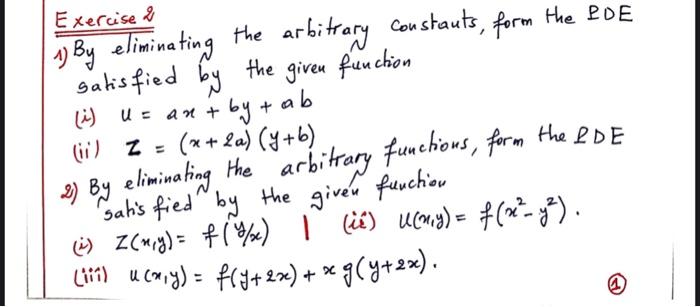 Exercise 2
1) By eliminating the arbitrary constauts, form the PDE
satisfied by the given function
(i) u = ax + by + ab
(ii) Z = (x + 2a) (y + b)
2) By eliminating the arbitrary functions, form the PDE
satisfied by the given function
(i) Z(x,y) = f(y/x) | (ii) u(x,y) = f(x² - y²).
(iii) u(x,y) = f(y + 2x) + x g(y + 2x).
1